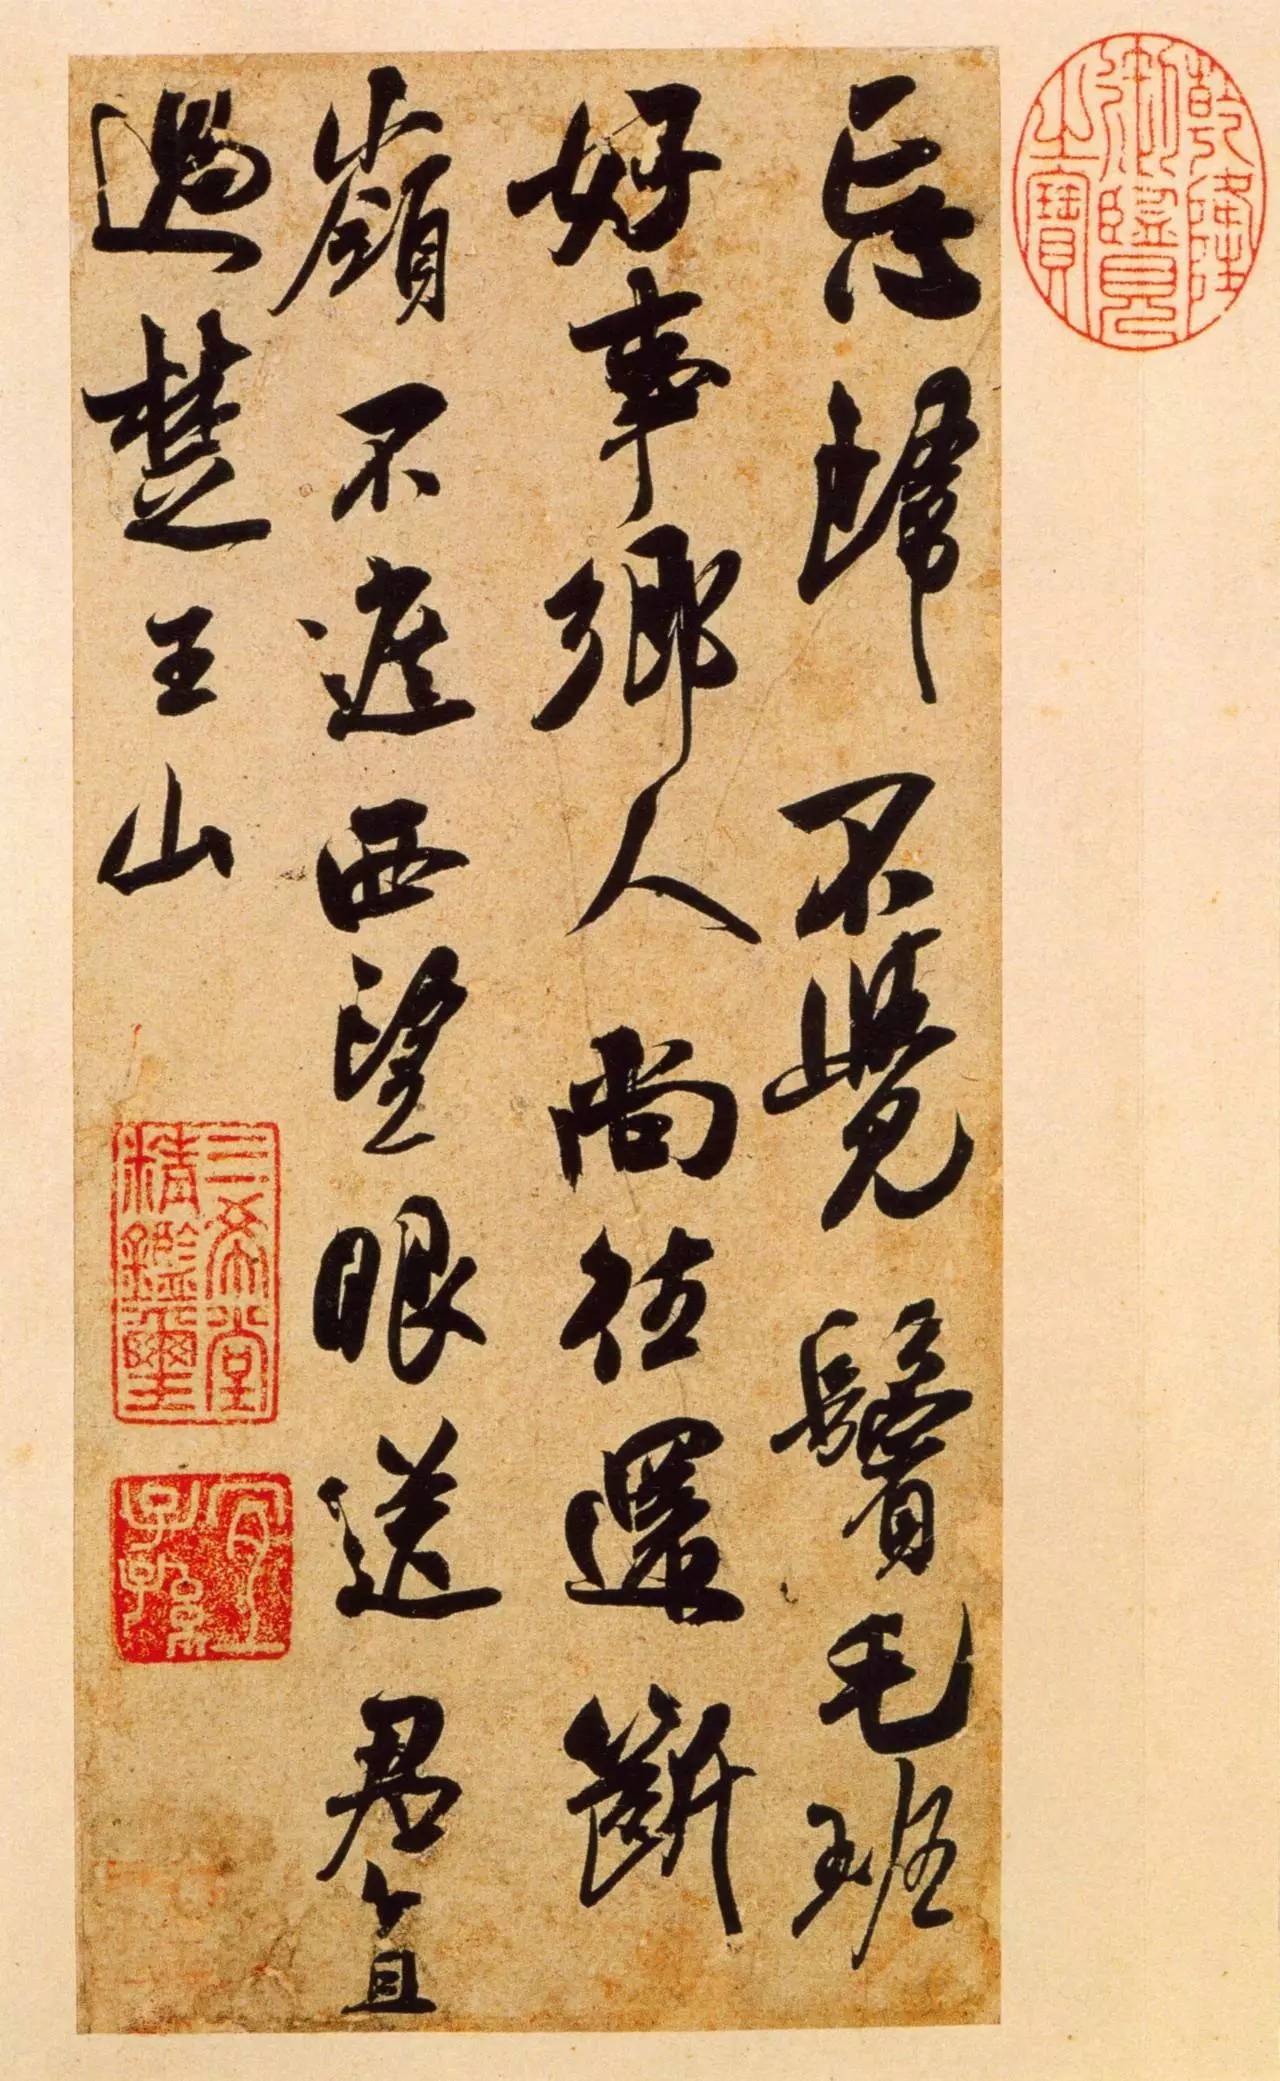 忘歸不覺鬢毛班
好事鄉人尚往還斷
嶺不遮西望眼送君直
過楚王山
乾隆
御覽
之寶
三希堂
精鑑璽
宜
子孫